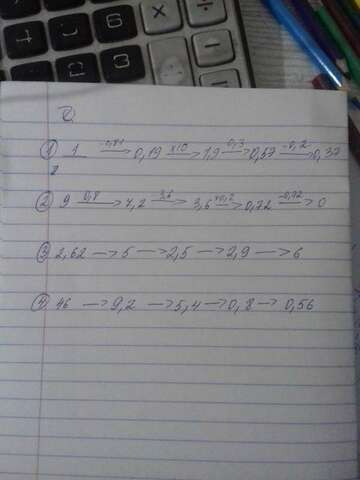 ① 1 -0,81→ 0,19 ×10→ 1,9 0,3→ 0,57 -0,2→ 0,37
② 9 0,8→ 7,2 3,6→ 3,6 ×0,2→ 0,72 -0,72→ 0
③ 2,62 → 5 → 2,5 → 2,9 → 6
④ 46 → 9,2 → 5,4 → 0,8 → 0,56